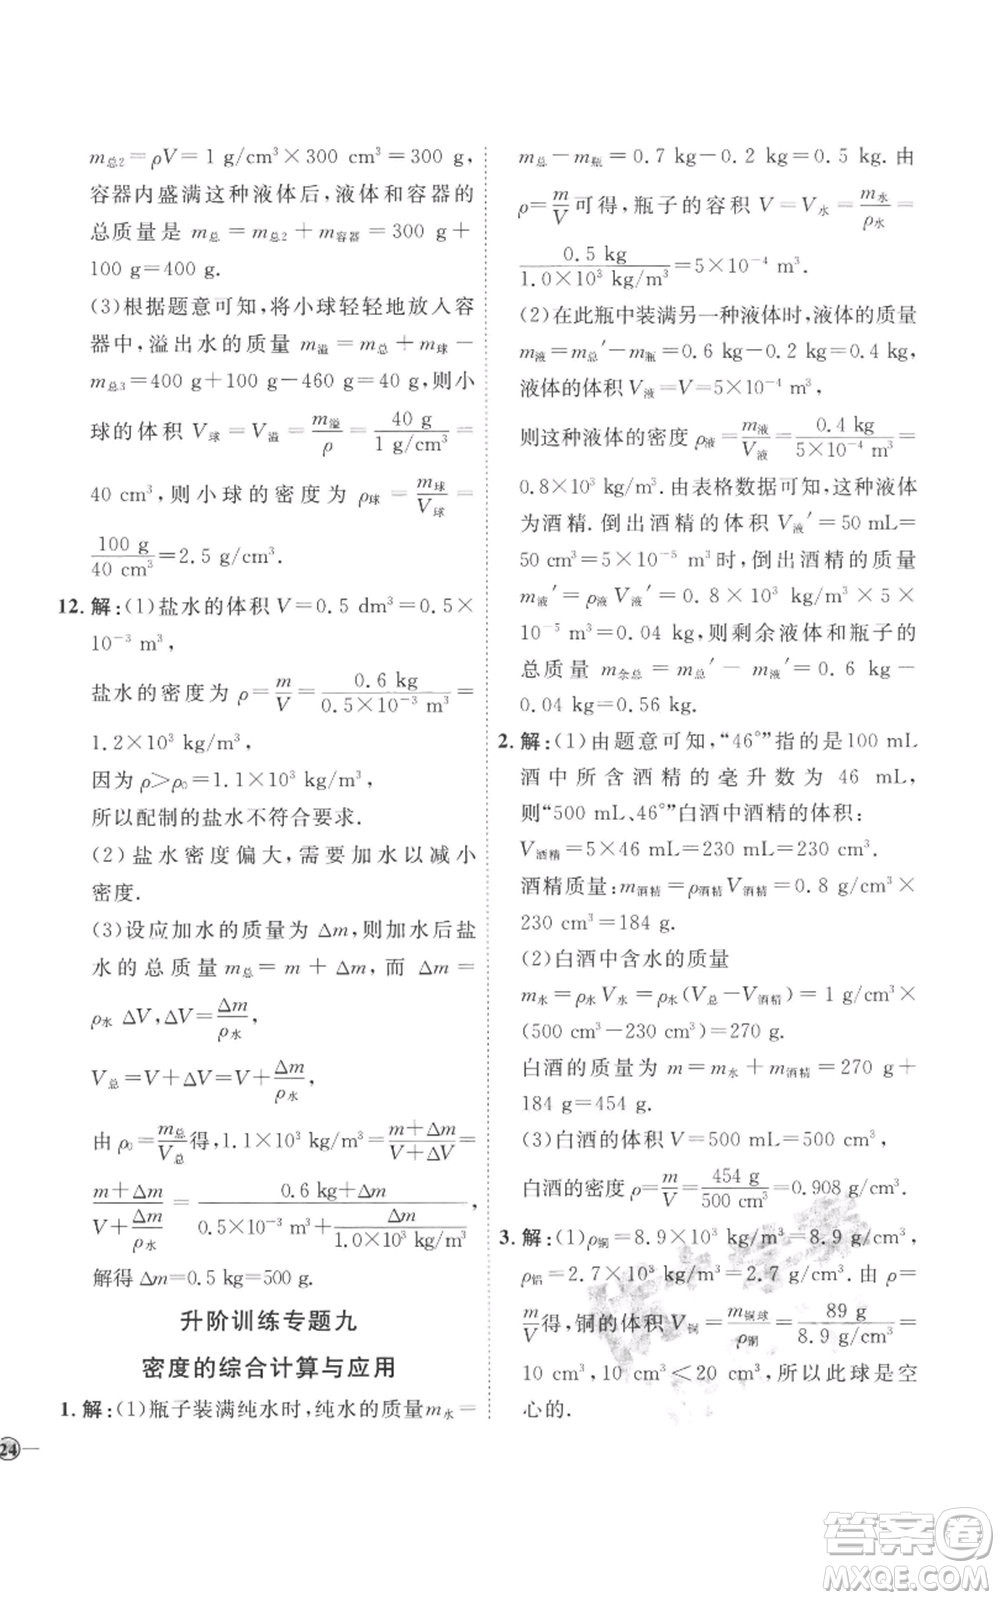 m总2=ρV=1 g/cm³×300 cm³=300 g,
容器内盛满这种液体后,液体和容器的
总质量是 m总=m总2+m容器=300 g+
100 g=400 g.
(3)根据题意可知,将小球轻轻地放入容
器中,溢出水的质量 m溢=m总+m球-
m总3=400 g+100 g-460 g=40 g,则小
球的体积 V球=V溢=m溢/ρ=40 g/1 g/cm³=
40 cm³,则小球的密度为 ρ球=m球/V球=
100 g/40 cm³=2.5 g/cm³.
12.解:(1)盐水的体积 V=0.5 dm³=0.5×
10⁻³ m³,
盐水的密度 ρ=m/V=0.6 kg/0.5×10⁻³ m³=
1.2×10³ kg/m³,
因为 ρ>ρ₀=1.1×10³ kg/m³,
所以配制的盐水不符合要求.
(2)盐水密度偏大,需要加水以减小
密度.
(3)设应加水的质量为 Δm,则加水后盐
水的总质量 m总=m+Δm,而 Δm=
ρ水 ΔV,ΔV=Δm/ρ水,
V总=V+ΔV=V+Δm/ρ水,
由 ρ₀=m总/V总得,1.1×10³ kg/m³=m+Δm/V+ΔV=
m+Δm/V+Δm/ρ水=0.6 kg+Δm/0.5×10⁻³ m³+Δm/1.0×10³ kg/m³,
解得 Δm=0.5 kg=500 g.
升阶训练专题九
密度的综合计算与应用
1.解:(1)瓶子装满纯水时,纯水的质量m水=
24
m总-m瓶=0.7 kg-0.2 kg=0.5 kg.由
ρ=m/V可得,瓶子的容积 V=V水=m水/ρ水=
0.5 kg/1.0×10³ kg/m³=5×10⁻⁴ m³.
(2)在此瓶中装满另一种液体时,液体的质量
m液=m总′-m瓶=0.6 kg-0.2 kg=0.4 kg,
液体的体积 V液=V=5×10⁻⁴ m³,
则这种液体的密度 ρ液=m液/V液=0.4 kg/5×10⁻⁴ m³=
0.8×10³ kg/m³.由表格数据可知,这种液体
为酒精.倒出酒精的体积 V液′=50 mL=
50 cm³=5×10⁻⁵ m³时,倒出酒精的质量
m液′=ρ液V液′=0.8×10³ kg/m³×5×
10⁻⁵ m³=0.04 kg,则剩余液体和瓶子的
总质量 m余总=m总′-m液′=0.6 kg-
0.04 kg=0.56 kg.
2.解:(1)由题意可知,“46°”指的是100 mL
酒中所含酒精的毫升数为 46 mL,
则“500 mL、46°”白酒中酒精的体积:
V酒精=5×46 mL=230 mL=230 cm³,
酒精质量:m酒精=ρ酒精V酒精=0.8 g/cm³×
230 cm³=184 g.
(2)白酒中含水的质量
m水=ρ水V水=ρ水(V总-V酒精)=1 g/cm³×
(500 cm³-230 cm³)=270 g.
白酒的质量为 m=m水+m酒精=270 g+
184 g=454 g.
(3)白酒的体积 V=500 mL=500 cm³,
白酒的密度 ρ=m/V=454 g/500 cm³=0.908 g/cm³.
3.解:(1)ρ铜=8.9×10³ kg/m³=8.9 g/cm³,
ρ铝=2.7×10³ kg/m³=2.7 g/cm³.由 ρ=
m/V得,铜的体积 V铜=m铜球/ρ铜=89 g/8.9 g/cm³=
10 cm³,10 cm³<20 cm³,所以此球是空
心的.
答案卷
MXQE.COM